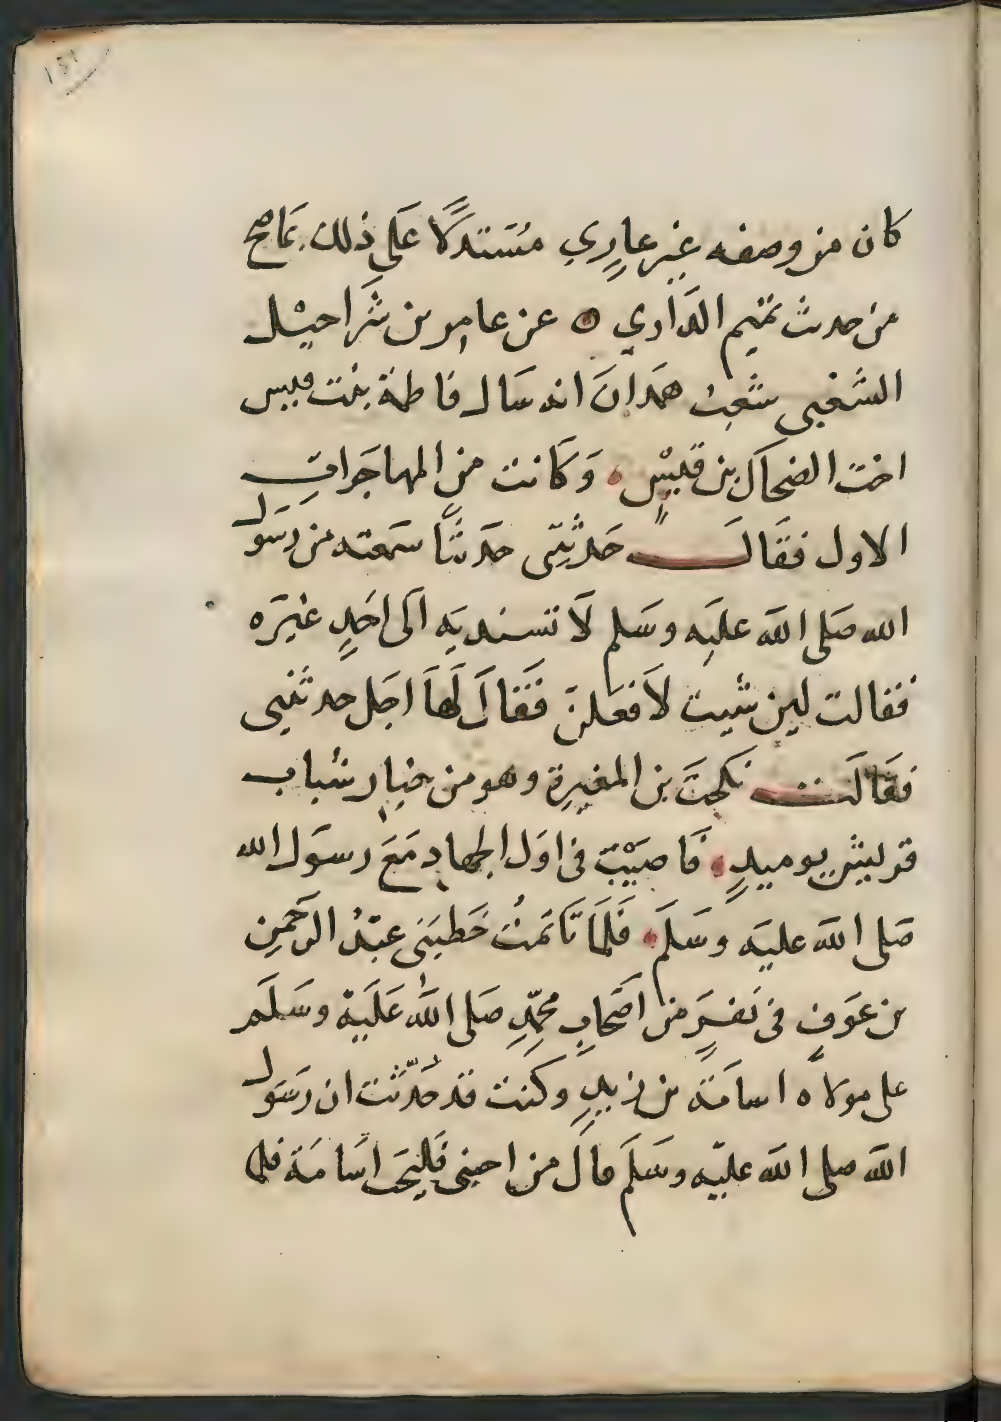 ١٥٩
كان من وصفه غير عاري مستدلا على ذلك بما صح
من حديث تميم الداري ه عن عامر بن شراحيل
الشعبى شعب همدان انه سال فاطمة بنت قيس
اخت الضحاك بن قيس ه وكانت من المهاجرات
الاول فقالـــ حدثينى حديثا سمعته من رسول
الله صلى الله عليه وسلم لا تسنديه الى احد غيره
فقالت لين شيت لافعلن فقال لها اجل حدثينى
فقالت نكحت بن المغيرة وهو من خيار شباب
قريش يوميذ ه فاصيب فى اول الجهاد مع رسول الله
صلى الله عليه وسلم ه فلما تايمت خطبنى عبد الرحمن
بن عوف فى نفر من اصحاب محمد صلى الله عليه وسلم
على مولاه اسامة بن زيد وكنت قد حدثت ان رسول
الله صلى الله عليه وسلم قال من احبنى فليحب اسامة فلما